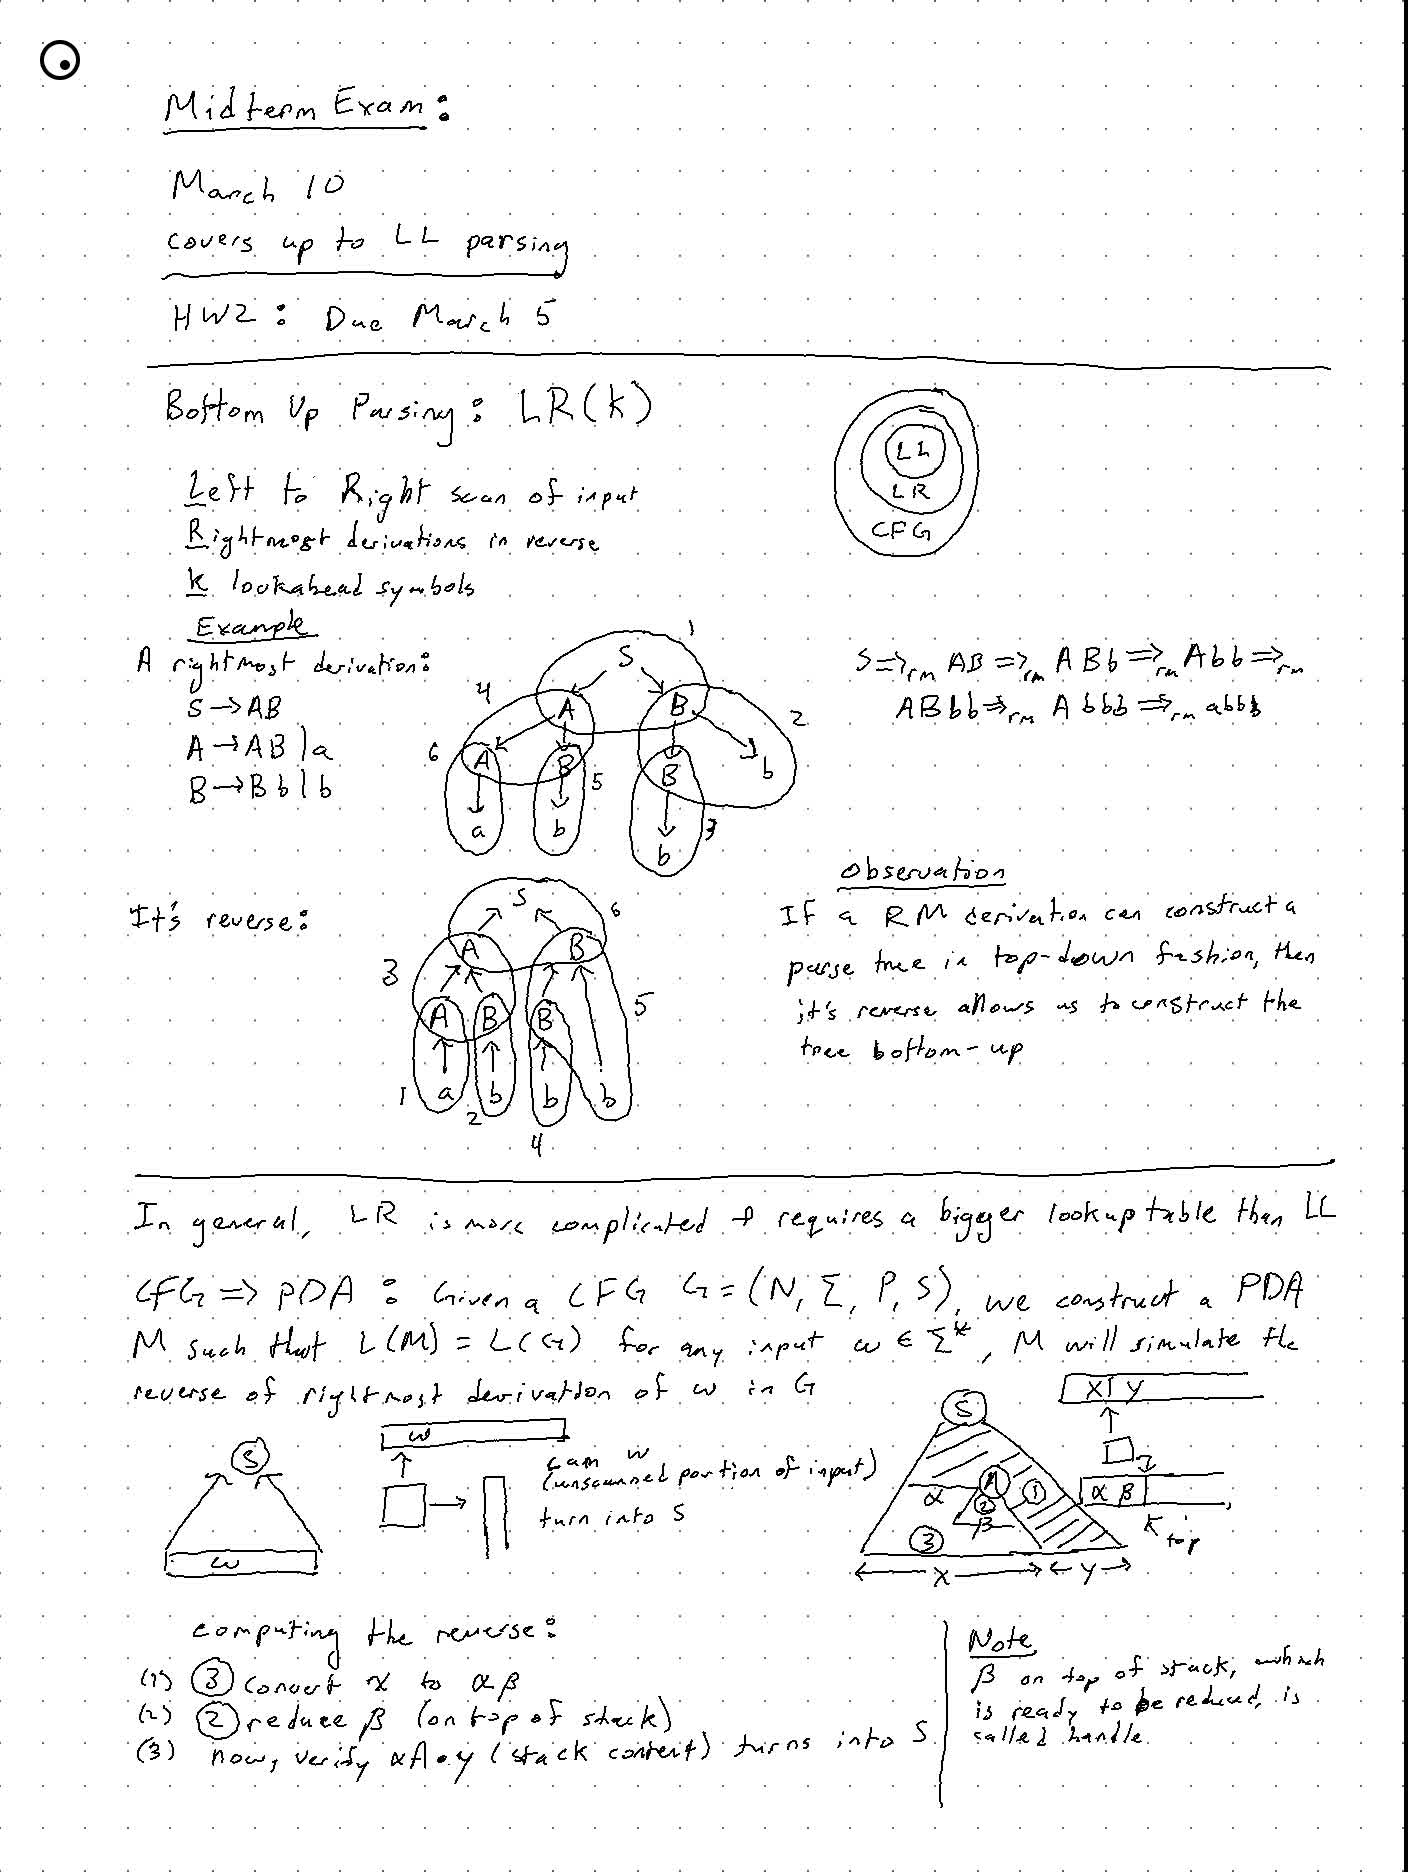 Midterm Exam:
March 10
covers up to LL parsing
HW2: Due March 5
Bottom Up Parsing: LR(k)
LL
LR
CFG
Left to Right scan of input
Rightmost derivations in reverse
k lookahead symbols
Example
A rightmost derivation:
S → AB
A → AB | a
B → Bb | b
1
S
4
A B
2
6
A B B b
5
a b
3
b
S ⇒rm AB ⇒rm ABb ⇒rm Abb ⇒rm
ABbb ⇒rm Abbb ⇒rm abbb
It's reverse:
S
6
A B
3
A B B
5
1 a b b b
2
4
Observation
If a RM derivation can construct a
parse tree in top-down fashion, then
it's reverse allows us to construct the
tree bottom-up
In general, LR is more complicated & requires a bigger lookup table than LL
CFG ⇒ PDA: Given a CFG G = (N, Σ, P, S), we construct a PDA
M such that L(M) = L(G) for any input w ∈ Σ*, M will simulate the
reverse of rightmost derivation of w in G
S
w
w
can w
(unscanned portion of input)
turn into S
S
A
α 2 1
β
3
x y
x y
α β
top
computing the reverse:
(1) ③ convert x to αβ
(2) ② reduce β (on top of stack)
(3) now, verify αA•y (stack content) turns into S
Note
β on top of stack, which
is ready to be reduced, is
called handle.